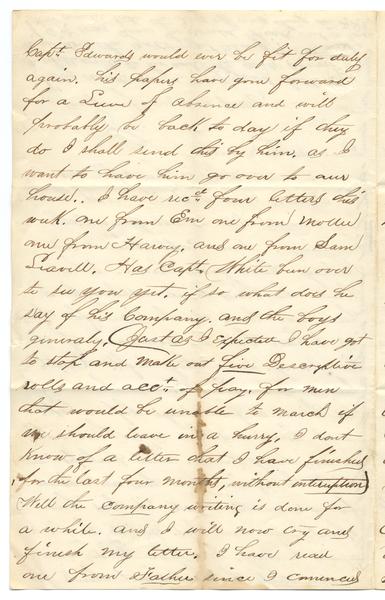 Capt. Edwards would ever be fit for duty
again. his papers have gone forward
for a Leave of absence and will
probably be back to day if they
do I shall send this by him, as I
want to have him go over to our
house.. I have recd four letters this
week. one from Em one from Mollie
one from Harvy. and one from Sam
Leavill. Has Capt. White been over
to see you yet. if so what does he
say of his Company. and the boys
generaly. (Just as I expected I have got
to stop and make out five Descriptive
rolls and acct. of pay. for men
that would be unable to march if
we should leave in a hurry. I dont
know of a letter that I have finished
for the last four months, without interuption)
Well the company writing is done for
a while. and I will now try and
finish my letter. I have read
one from Father since I comenced